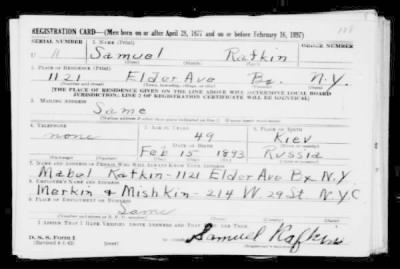 REGISTRATION CARD—(Men born on or after April 28, 1877 and on or before February 16, 1897)
SERIAL NUMBER 1. NAME (Print) ORDER NUMBER
U Samuel Ratkin
2. PLACE OF RESIDENCE (Print)
1121 Elder Ave Bx. N.Y.
[THE PLACE OF RESIDENCE GIVEN ON THE LINE ABOVE WILL DETERMINE LOCAL BOARD
JURISDICTION; LINE 2 OF REGISTRATION CERTIFICATE WILL BE IDENTICAL]
3. MAILING ADDRESS
Same
4. TELEPHONE 5. AGE IN YEARS 6. PLACE OF BIRTH
none 49 Kiev
DATE OF BIRTH
Feb 15 1893 Russia
7. NAME AND ADDRESS OF PERSON WHO WILL ALWAYS KNOW YOUR ADDRESS
Mabel Ratkin-1121 Elder Ave Bx N.Y.
8. EMPLOYER'S NAME AND ADDRESS
Merkin & Mishkin-214 W. 29 St. N.Y.C
9. PLACE OF EMPLOYMENT OR BUSINESS
Same
I AFFIRM THAT I HAVE VERIFIED ABOVE ANSWERS AND THAT THEY ARE TRUE.
D. S. S. Form 1
Samuel Ratkin